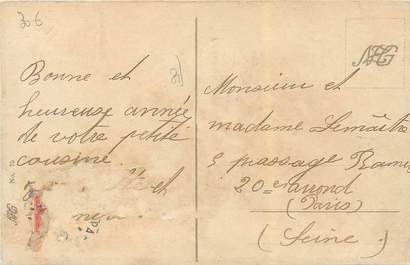 30€
Bonne et
heureuse année
de votre petite
cousine.
et
No. 75
Monsieur et
madame Lemaître
5 passage
20e arrond
(Paris)
(Seine)